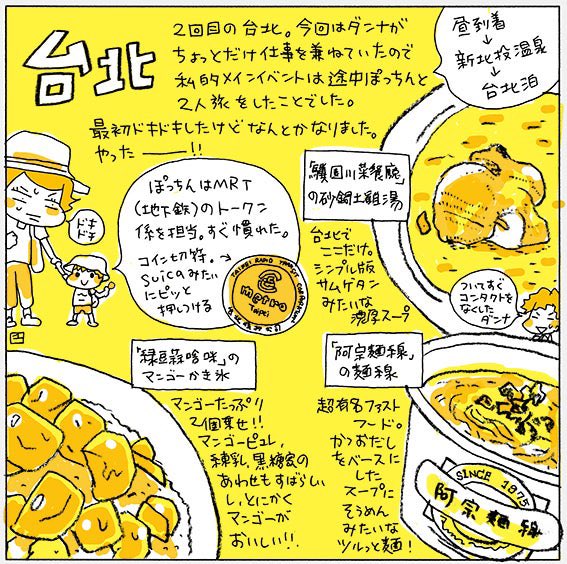 台北
2回目の台北。今回はダンナが
ちょっとだけ仕事を兼ねていたので
私的メインイベントは途中ぽっちんと
2人旅をしたことでした。
最初ドキドキしたけどなんとかなりました。
やったー!!
昼到着
↓
新北投温泉
↓
台北泊
ドキ
ドキ
ぽっちんはMRT
(地下鉄)のトークン
係を担当。すぐ慣れた。
コインセワ符。→
Suicaみたい
にピッと
押しつける
TAIPEI RAPID TRANSIT CORPORATION
metro
Taipei
「驥園川菜餐廳」
の砂鍋土雞湯
台北で
ここだけ。
シンプル版
サムゲタン
みたいな
濃厚スープ
ついてすぐ
コンタクトを
なくした
ダンナ
「緑豆蒜啥咪」の
マンゴーかき氷
マンゴーたっぷり
2個乗せ!!
マンゴーピュレ、
練乳、黒糖家の
あわせもすばらしい
し、とにかく
マンゴーが
おいしい!!
「阿宗麺線」
の麺線
超有名ファスト
フード。
かつおだし
をベースに
した
スープに
そうめん
みたいな
ツルっと麺!
SINCE 1975
阿宗麺線